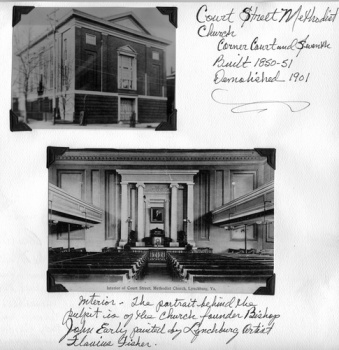 Court Street Methodist
Church
Corner Court and Seventh
Built 1850-51
Demolished 1901
Interior of Court Street Methodist Church, Lynchburg, Va.
Interior - The portrait behind the
pulpit is of the church founder Bishop
John Early painted by Lynchburg artist
Flavius Fisher.